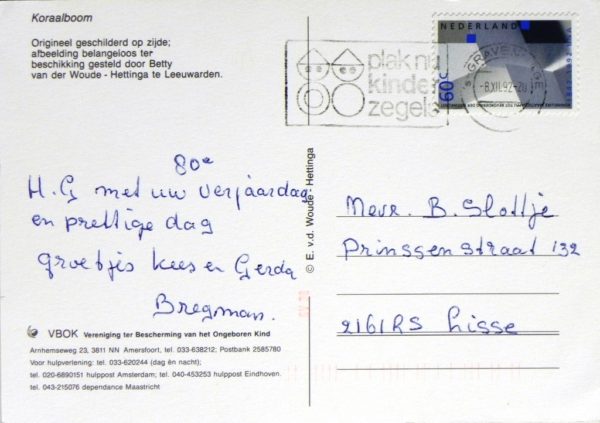 Koraalboom
Origineel geschilderd op zijde;
afbeelding belangeloos ter
beschikking gesteld door Betty
van der Woude - Hettinga te Leeuwarden.
NEDERLAND
60c
plak nu
kinder
zegels
'S-GRAVENHAGE
-8.XII.92-20
80e
H.G met uw verjaardag
en prettige dag
groetjes Kees en Gerda
Bregman.
© E. v.d. Woude - Hettinga
Mevr. B. Slottje
Prinssenstraat 132
2161RS Lisse
VBOK Vereniging ter Bescherming van het Ongeboren Kind
Arnhemseweg 23, 3811 NN Amersfoort, tel. 033-638212; Postbank 2585780
Voor hulpverlening: tel. 033-620244 (dag èn nacht);
tel. 020-6890151 hulppost Amsterdam; tel. 040-453253 hulppost Eindhoven.
tel. 043-215076 dependance Maastricht